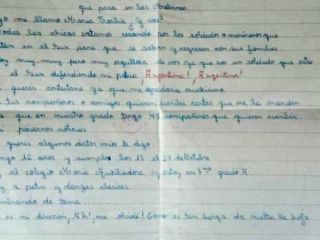 que pasa en las Malvinas.
go me llamo María Cecilia ¿Y vos?
odas las chicas estamos rezando por los soldados o marineros que
tán en el Sur para que se salven y regresen con sus familias.
oy muy, muy pero muy orgullosa de vos ya que sos un soldado que está
el Sur defendiendo mi patria, ¡Argentina! ¡Argentina!
queres contestame ya que me agradaria muchisimo.
tus compañeros o amigos quieren cartas que me la manden
que en nuestro grado tengo 42 compañeras que quieren escribir
pasarnos noticias.
queres algunos datos mios te digo.
ngo 12 años y cumplo los 13 el 27 de Octubre
al colegio María Auxiliadora y estoy en 7mo grado A
y a patin y danzas clasicas.
mbiando de tema...
es mi dirección, Ah!, me olvidé! Como es tan larga da vuelta la hoja